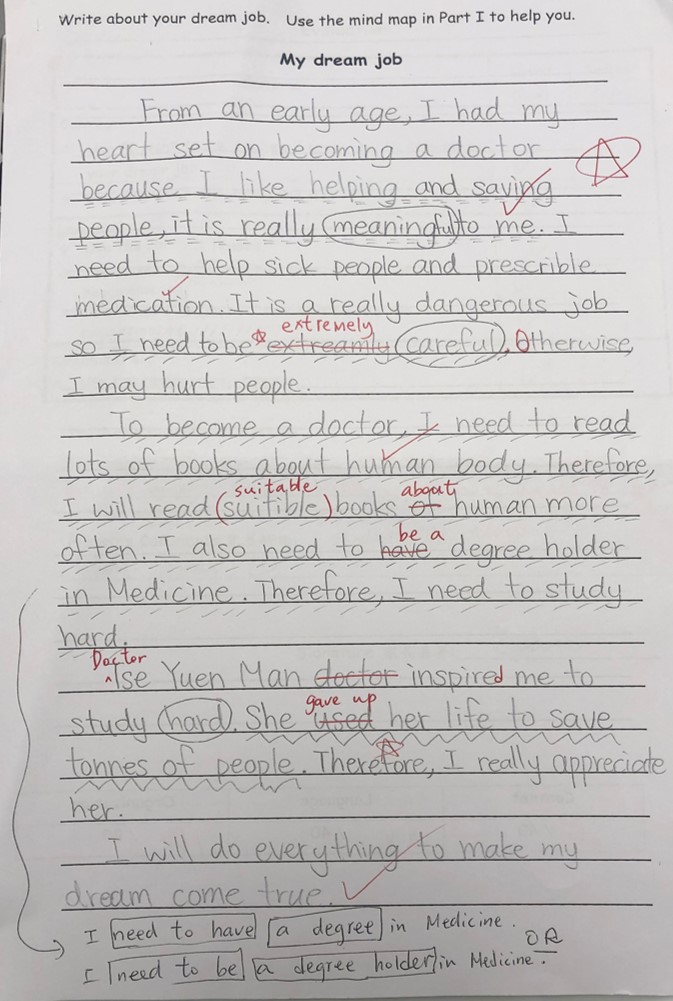 Write about your dream job. Use the mind map in Part I to help you.
My dream job
From an early age, I had my
heart set on becoming a doctor
because I like helping and saving
people, it is really meaningful to me. I
need to help sick people and prescrible
medication. It is a really dangerous job
extremely
so I need to be extreamly careful. Otherwise,
I may hurt people.
To become a doctor, I need to read
lots of books about human body. Therefore,
suitable about
I will read (suitible) books of human more
be a
often. I also need to have degree holder
in Medicine. Therefore, I need to study
hard.
Doctor
Tse Yuen Man doctor inspired me to
gave up
study hard. She used her life to save
tonnes of people. Therefore, I really appreciate
her.
I will do everything to make my
dream come true.
I need to have a degree in Medicine.
OR
I need to be a degree holder in Medicine.